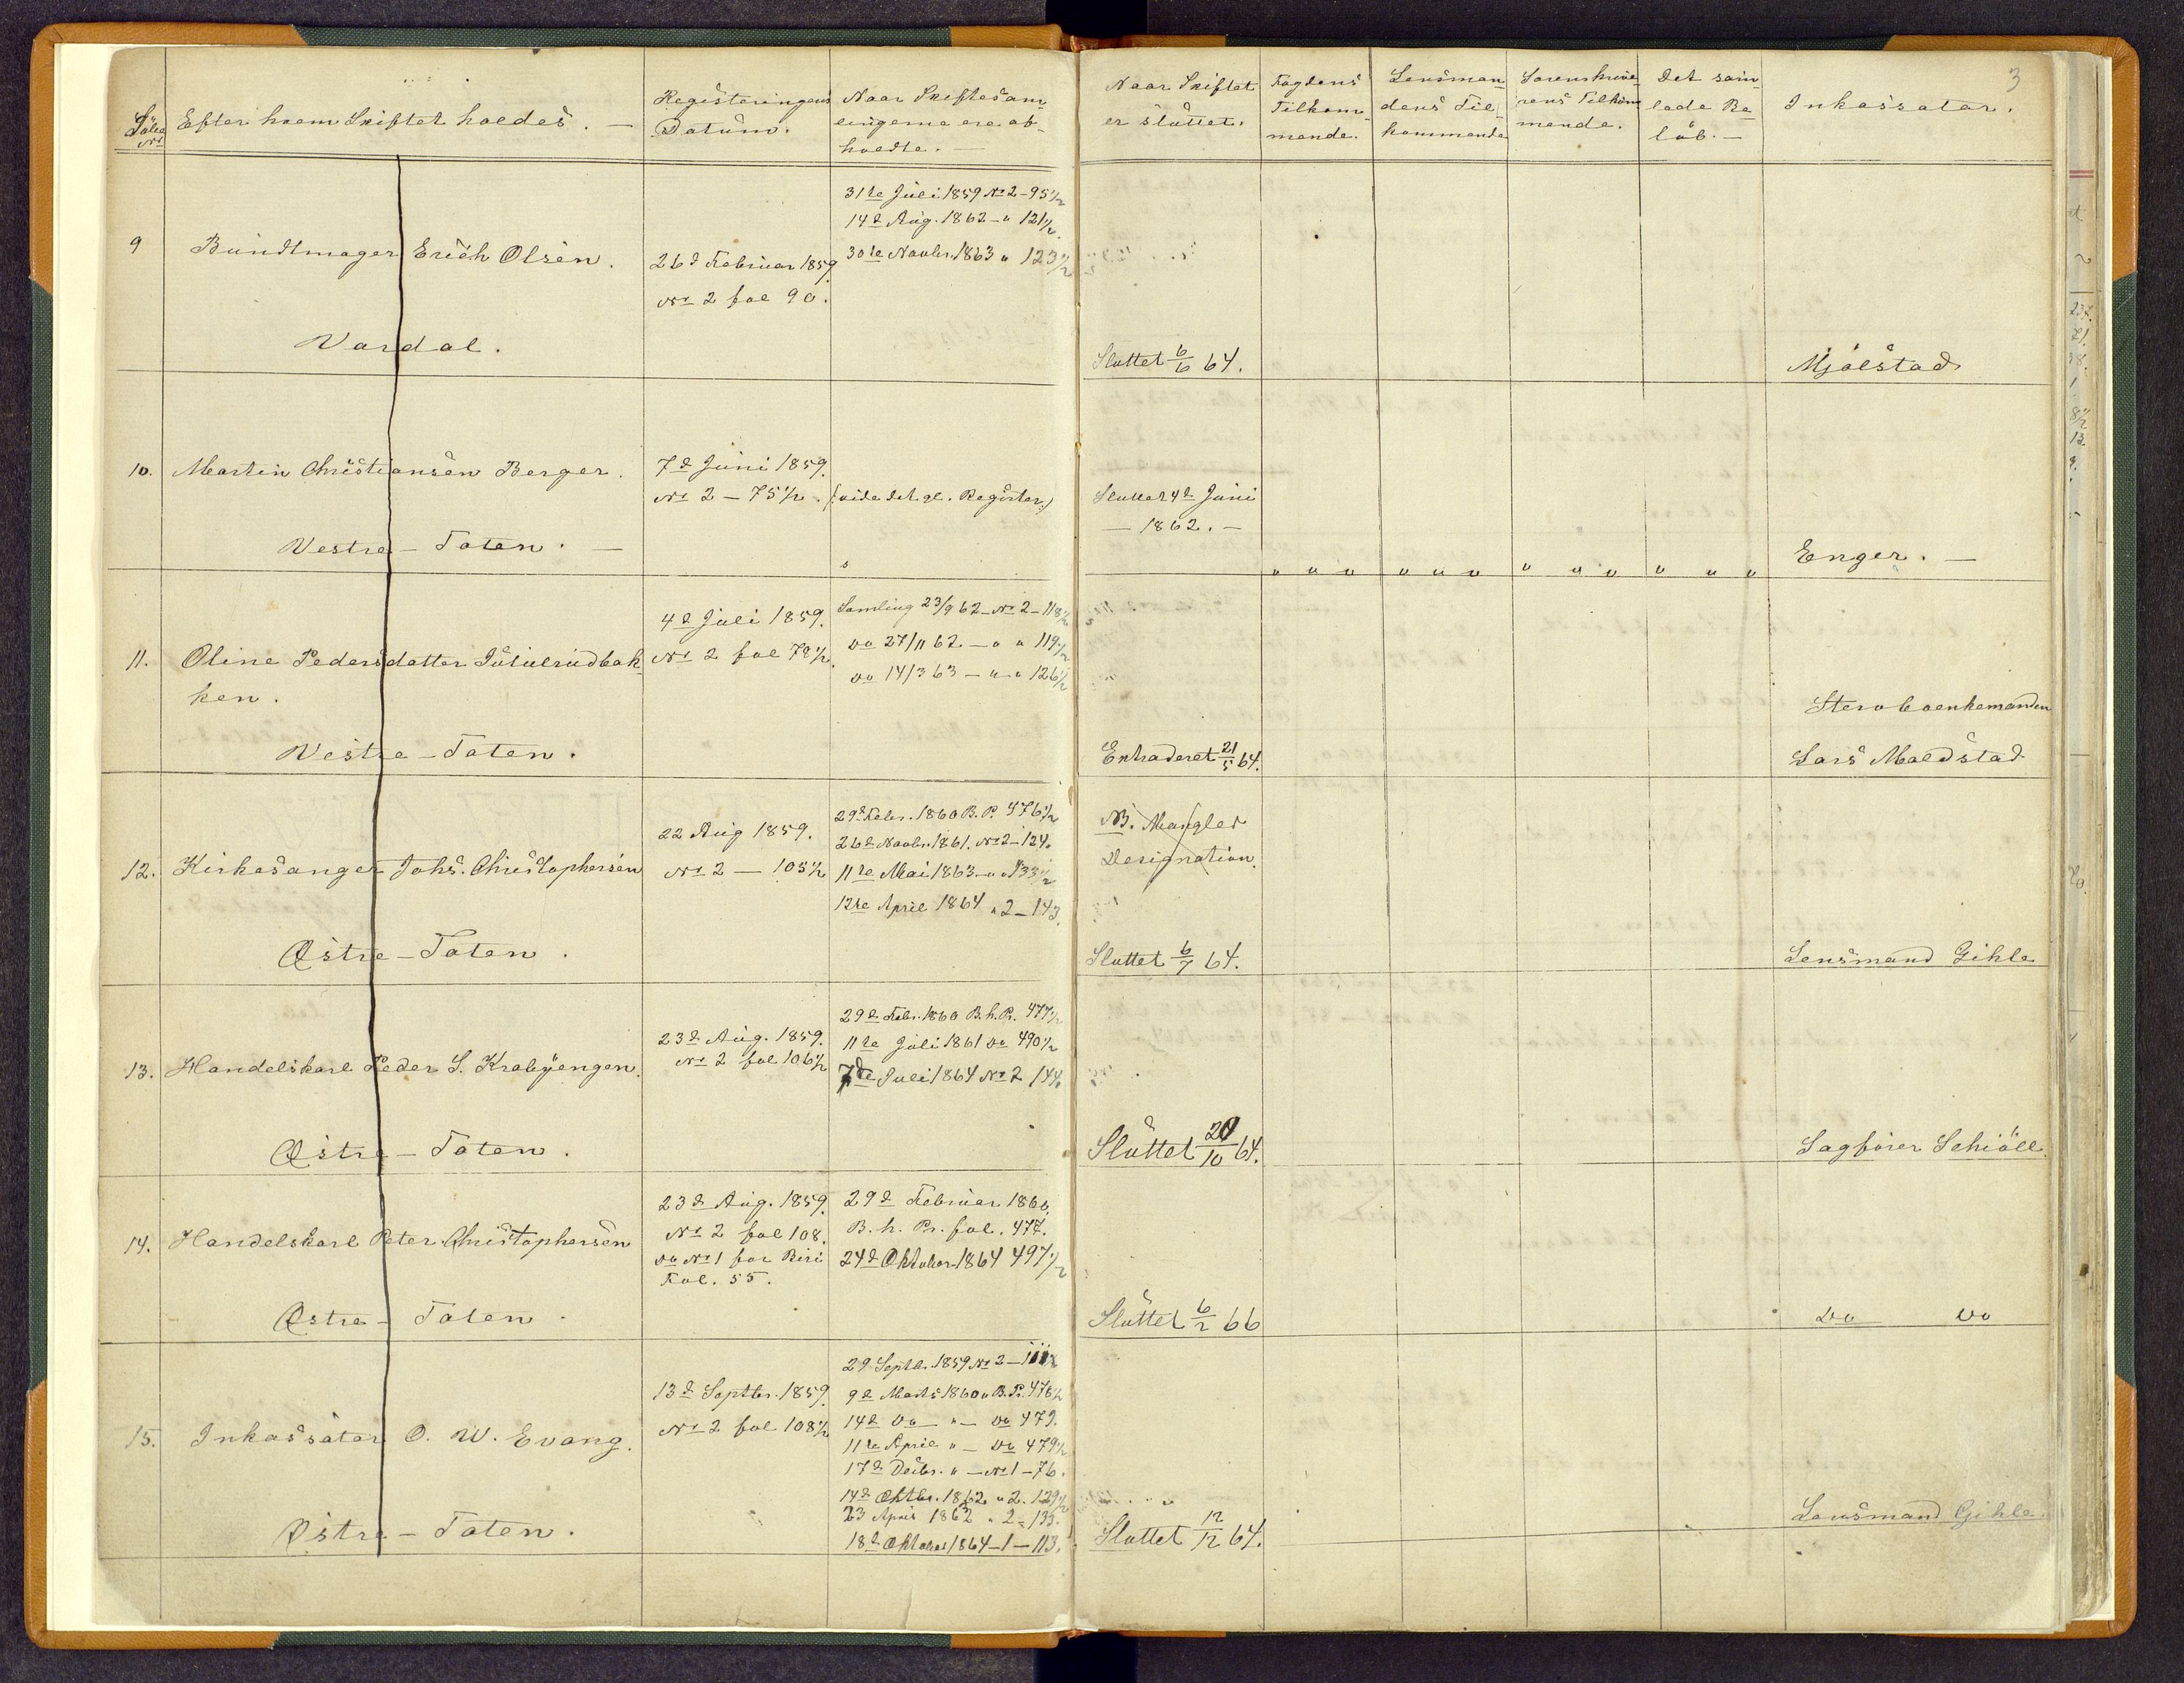 3
Løbe No
Efter hvem Skiftet holdes. —
Registeringens Datum.
Naar Skiftesamlingerne ere afholdte. —
Naar Skiftet er sluttet.
Fogdens Tilkommende.
Lensmandens Tilkommende
Sorenskriverens Tilkommende.
Det samlede Beløb. —
Inkassator.
9
Bundtmager Erich Olsen.
Vardal.
26d Februar 1859
No 2 fol 90.
31te Juli 1859 No 2 - 95 1/2
14d Aug. 1862 - " 121 1/2.
30te Novbr. 1863 " 123 1/2
Sluttet 6/6 64.
Mjølstad
10.
Martin Christiansen Berger.
Vestre - Toten. —
7d Juni 1859.
No 2 — 75 1/2.
(: vide det gl. Register :)
Sluttet 4d Juni
— 1862. —
" " " " " " " " " " " "
Enger. —
11.
Oline Pedersdatter
ken.
Vestre - Toten.
4d Juli 1859.
No 2 fol 78 1/2.
Samling 23/9 62 - No 2 - 118 1/2
Do 27/11 62. — " " 119 1/2
Do 14/3 63 — " " 126 1/2
Extraderet 21/5 64.
Stervboenkemanden
Lars Maldstad
12.
Kirkesanger Johs. Christophersen
Østre - Toten.
22 Aug 1859.
No 2 — 105 1/2
29d Febr. 1860 B. P. 476 1/2
26d Novbr. 1861. No 2 - 124.
11te Mai 1863 - " " 133 1/2
12te April 1864 " 2 - 143.
NB. Mangler
Designation.
Sluttet 6/7 64.
Lensmand Gihle
13.
Handelskarl Peder S. Krabyengen.
Østre - Toten.
23d Aug. 1859.
No 2 fol 106 1/2
29d Febr. 1860 B. h. Pr. 477 1/2
11te Juli 1861 Do 490 1/2
7de Juli 1864 No 2 144.
Sluttet 20/10 64.
Sagfører Schiöll.
14.
Handelskarl Peter Christophersen
Østre - Toten.
23d Aug. 1859.
No 2 fol 108.
Do No 1 for Biri
Fol. 55.
29d Februar 1860.
B. h. Pr. fol. 477.
24d Oktober 1864 497 1/2
Sluttet 6/2 66
Do Do
15.
Inkassator O. W. Evang.
Østre - Toten.
13d Septbr. 1859.
No 2 fol 108 1/2
29 Septbr. 1859 No 2 —
9d Marts 1860 " B. Pr. 478 1/2
14d Do — " — Do 479.
11te April " — Do 479 1/2
17d Decbr. " — No 1 - 76.
14d Oktbr. 1862 " 2. 129 1/2
23 April 1862 " 2 - 133.
18d Oktober 1864 - 1 — 113.
Sluttet 12/12 64.
Lensmand Gihle.